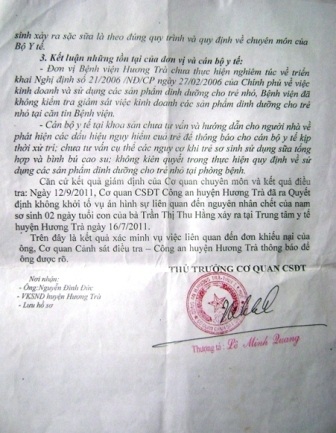 sinh xảy ra sặc sữa là theo đúng quy trình và quy định về chuyên môn của
Bộ Y tế.
3. Kết luận những tồn tại của đơn vị và cán bộ y tế:
- Đơn vị Bệnh viện Hương Trà chưa thực hiện nghiêm túc về triển
khai Nghị định số 21/2006 /NĐ/CP ngày 27/02/2006 của Chính phủ về việc
kinh doanh và sử dụng các sản phẩm dinh dưỡng cho trẻ nhỏ, Bệnh viện đã
không kiểm tra giám sát việc kinh doanh các sản phẩm dinh dưỡng cho trẻ
nhỏ tại căn tin Bệnh viện.
- Cán bộ y tế tại khoa sản chưa tư vấn và hướng dẫn cho người nhà về
phát hiện các dấu hiệu nguy hiểm của trẻ để thông báo cho cán bộ y tế kịp
thời xử trí; chưa tư vấn cụ thể các nguy cơ khi trẻ sơ sinh sử dụng sữa tổng
hợp và bình bú cao su; không kiên quyết trong thực hiện quy định về sử
dụng các sản phẩm dinh dưỡng cho trẻ nhỏ tại phòng bệnh.
Căn cứ kết quả giám định của Cơ quan chuyên môn và kết quả điều
tra: Ngày 12/9/2011, Cơ quan CSĐT Công an huyện Hương Trà đã ra Quyết
định không khởi tố vụ án hình sự liên quan đến nguyên nhân chết của nam
sơ sinh 02 ngày tuổi con của bà Trần Thị Thu Hằng xảy ra tại Trung tâm y tế
huyện Hương Trà ngày 16/7/2011.
Trên đây là kết quả xác minh vụ việc liên quan đến đơn khiếu nại của
ông, Cơ quan Cảnh sát điều tra – Công an huyện Hương Trà thông báo để
ông được rõ.
THỦ TRƯỞNG CƠ QUAN CSĐT
Nơi nhận:
- Ông Nguyễn Đình Đức
- VKSND huyện Hương Trà
- Lưu hồ sơ
Thượng tá: Lê Minh Quang